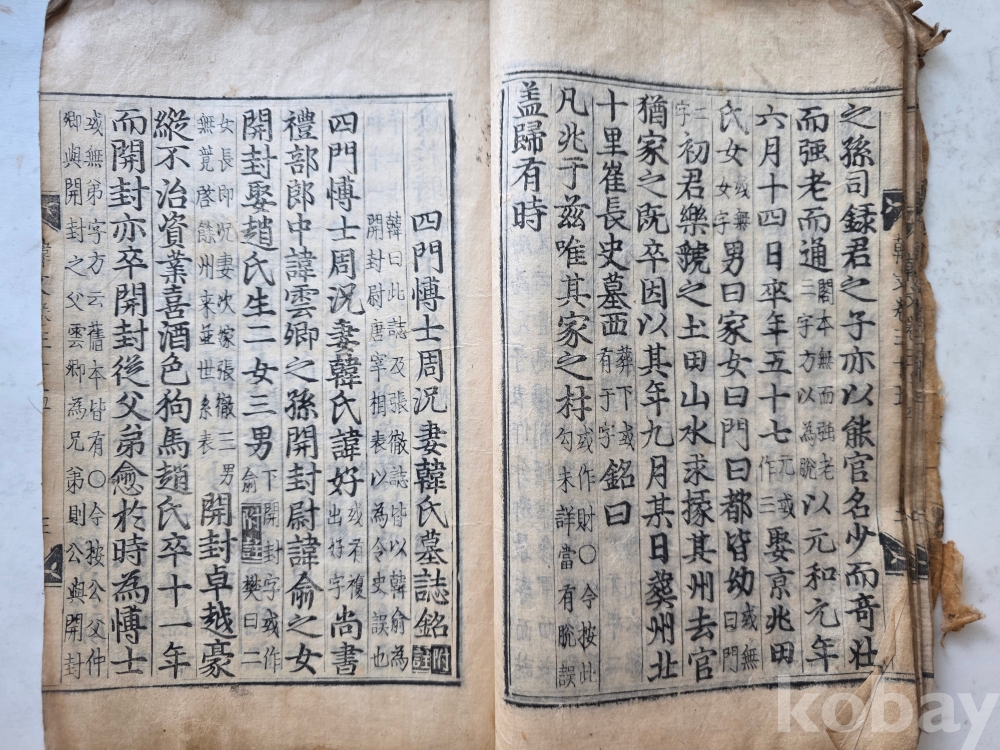 之孫司録君之子亦以能官名少而竒壯
而强老而通閣本無而强老三字方以為脫以元和元年
六月十四日卒年五十七元或作三娶京兆田
氏女或無女字男曰家女曰門曰都皆幼或無曰門
二字初君樂虢之土田山水求掾其州去官
猶家之既卒因以其年九月某日葬州北
十里崔長史墓西葬下或有于字銘曰
凡兆于茲唯其家之材或作財〇今按此句未詳當有脫誤
盖歸有時
四門博士周况妻韓氏墓誌銘附註
韓曰此誌及張徹誌皆以韓俞為
開封尉唐宰相表以為令史誤也
四門博士周况妻韓氏諱好或有複出好字尚書
禮部郎中諱雲卿之孫開封尉諱俞之女
開封娶趙氏生二女三男下開封字或作俞附註樊曰二
女長即况妻次嫁張徹三男無競啓餘州来並世系表開封卓越豪
縱不治資業喜酒色狗馬趙氏卒十一年
而開封亦卒開封從父弟愈於時為博士
或無弟字方云舊本皆有〇今按公父仲
卿與開封之父雲卿為兄弟則公與開封
韓文卷三十五
kobay